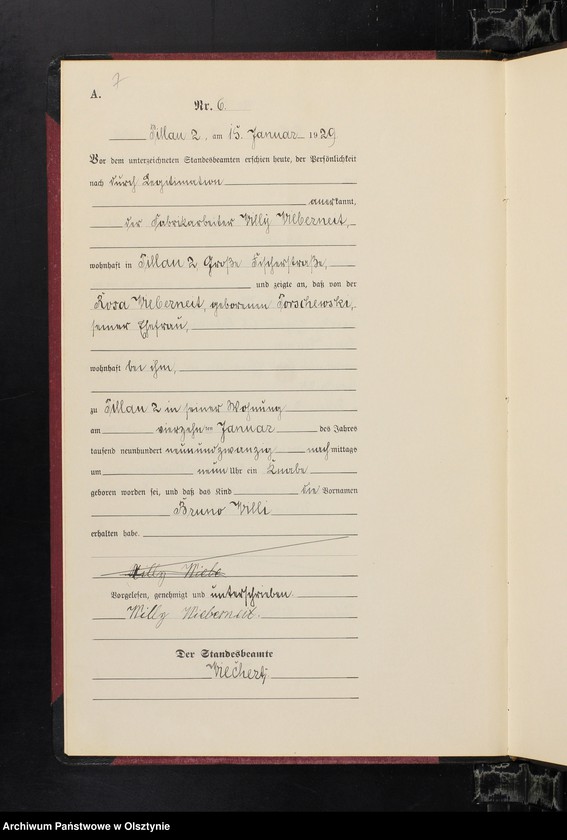 7
A.
Nr. 6.
Pillau 2, am 15. Januar 1929
Vor dem unterzeichneten Standesbeamten erschien heute, der Persönlichkeit
nach durch Legitimation
anerkannt,
der Fabrikarbeiter Willy Wieberneit,
wohnhaft in Pillau 2 Große Fischerstraße,
und zeigte an, daß von der
Rosa Wieberneit, geborenen
seiner Ehefrau,
wohnhaft bei ihm,
zu Pillau 2 in seiner Wohnung
am vierzehnten Januar des Jahres
tausend neunhundert neunundzwanzig nachmittags
um neun Uhr ein Knabe
geboren worden sei, und daß das Kind die Vornamen
Bruno Willi
erhalten habe.
Willy Wiebe
Vorgelesen, genehmigt und unterschrieben
Willy Wieberneit.
Der Standesbeamte
Wiechert
Archiwum Państwowe w Olsztynie